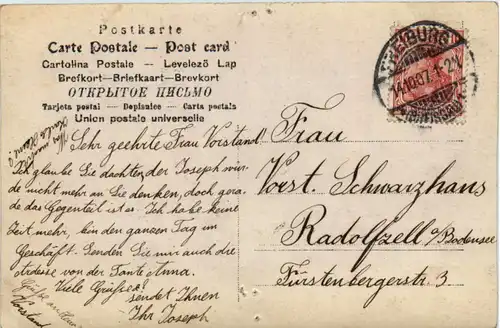 Postkarte
Carte Postale — Post card
Cartolina Postale – Levelező Lap
Brefkort–Briefkaart–Brevkort
ОТКРЫТОЕ ПИСЬМО
Tarjeta postal – Dopisnice – Carta postala
Union postale universelle
FREIBURG
14.10.07. 1-2N
Sehr geehrte Frau Vorstand!
Ich glaube Sie dachten, der Joseph wür-
de nicht mehr an Sie denken, doch gera-
de das Gegenteil ist es. Ich habe keine
Zeit mehr, bin den ganzen Tag im
Geschäft. Senden Sie mir auch die
Adresse von der Tante Anna.
Viele Grüsse!
sendet Ihnen
Ihr Joseph
Grüße
Vorstand
Frau
Vorst. Schwarzhans
Radolfzell a/Bodensee
Fürstenbergerstr. 3